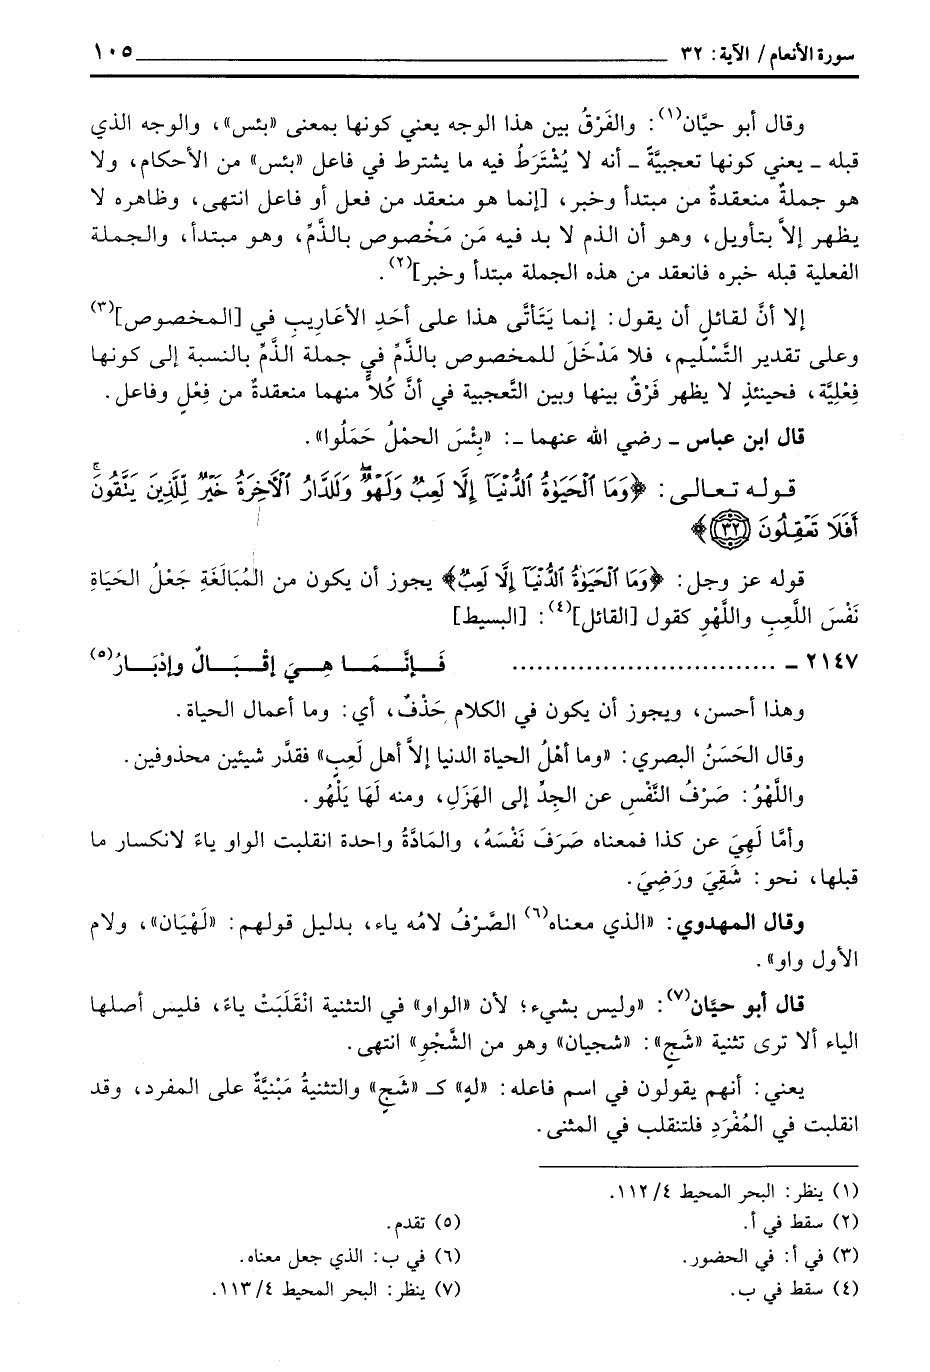 سورة الأنعام / الآية: ٣٢ ١٠٥
وقال أبو حيَّان(١): والفَرْقُ بين هذا الوجه يعني كونها بمعنى «بئس»، والوجه الذي
قبله ـ يعني كونها تعجبيَّةً ـ أنه لا يُشْتَرَطُ فيه ما يشترط في فاعل «بئس» من الأحكام، ولا
هو جملةٌ منعقدةٌ من مبتدأ وخبر، [إنما هو منعقد من فعل أو فاعل انتهى، وظاهره لا
يظهر إلاَّ بتأويل، وهو أن الذم لا بد فيه مَن مَخْصوص بالذَّمِّ، وهو مبتدأ، والجملة
الفعلية قبله خبره فانعقد من هذه الجملة مبتدأ وخبر](٢).
إلا أنَّ لقائلٍ أن يقول: إنما يَتَأتَّى هذا على أحَدِ الأعَاريبِ في [المخصوص](٣)
وعلى تقدير التَّسْليم، فلا مَدْخَلَ للمخصوص بالذَّمِّ في جملة الذَّمِّ بالنسبة إلى كونها
فِعْلِيَّة، فحينئذٍ لا يظهر فَرْقٌ بينها وبين التَّعجبية في أنَّ كُلاًّ منهما منعقدةٌ من فِعْلٍ وفاعل.
قال ابن عباس ـ رضي الله عنهما ـ: «بِئْسَ الحمْلُ حَمَلُوا».
قوله تعالى: ﴿وَمَا ٱلْحَيَوٰةُ ٱلدُّنْيَآ إِلَّا لَعِبٌ وَلَهْوٌۖ وَلَلدَّارُ ٱلْأَخِرَةُ خَيْرٌ لِّلَّذِينَ يَتَّقُونَۚ
أَفَلَا تَعْقِلُونَ ٣٢﴾
قوله عز وجل: ﴿وَمَا ٱلْحَيَوٰةُ ٱلدُّنْيَآ إِلَّا لَعِبٌ﴾ يجوز أن يكون من المُبَالَغَةِ جَعْلُ الحَيَاةِ
نَفْسَ اللَّعِبِ واللَّهْوِ كقول [القائل](٤): [البسيط]
٢١٤٧ ـ .............................. فَإنَّمَا هِيَ إقْبَالٌ وإدْبَارُ(٥)
وهذا أحسن، ويجوز أن يكون في الكلام حَذْفٌ، أي: وما أعمال الحياة.
وقال الحَسَنُ البصري: «وما أهْلُ الحياة الدنيا إلاَّ أهل لَعِبٍ» فقدَّر شيئين محذوفين.
واللَّهْوُ: صَرْفُ النَّفْسِ عن الجِدِّ إلى الهَزَلِ، ومنه لَهَا يَلْهُو.
وأمَّا لَهِيَ عن كذا فمعناه صَرَفَ نَفْسَهُ، والمَادَّةُ واحدة انقلبت الواو ياءً لانكسار ما
قبلها، نحو: شَقِيَ ورَضِيَ.
وقال المهدوي: «الذي معناه(٦) الصَّرْفُ لامُه ياء، بدليل قولهم: «لَهْيَان»، ولام
الأول واو».
قال أبو حيَّان(٧): «وليس بشيء؛ لأن «الواو» في التثنية انْقَلَبَتْ ياءً، فليس أصلها
الياء ألا ترى تثنية «شَجٍ»: «شجيان» وهو من الشَّجْوِ» انتهى.
يعني: أنهم يقولون في اسم فاعله: «لهٍ» كـ «شَجٍ» والتثنيةُ مَبْنيَّةٌ على المفرد، وقد
انقلبت في المُفْرَدِ فلتنقلب في المثنى.
(١) ينظر: البحر المحيط ٤/ ١١٢.
(٢) سقط في أ.
(٣) في أ: في الحضور.
(٤) سقط في ب.
(٥) تقدم.
(٦) في ب: الذي جعل معناه.
(٧) ينظر: البحر المحيط ٤/ ١١٣.